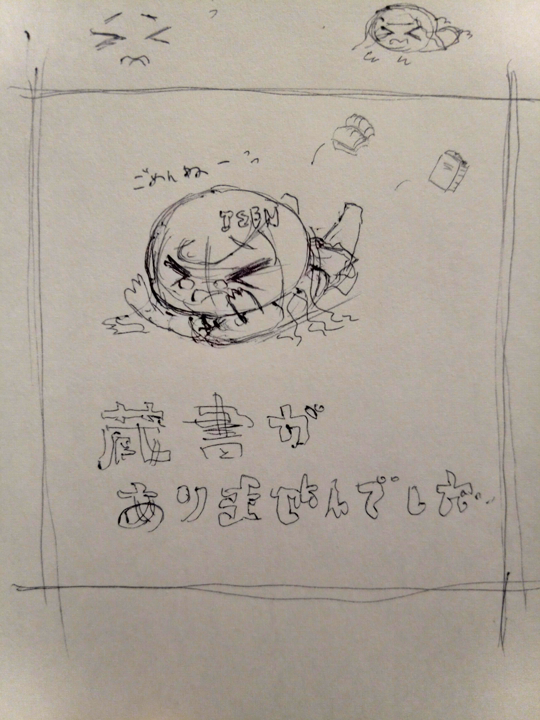 ごめんねー
TEEN
蔵書が
ありませんでした..